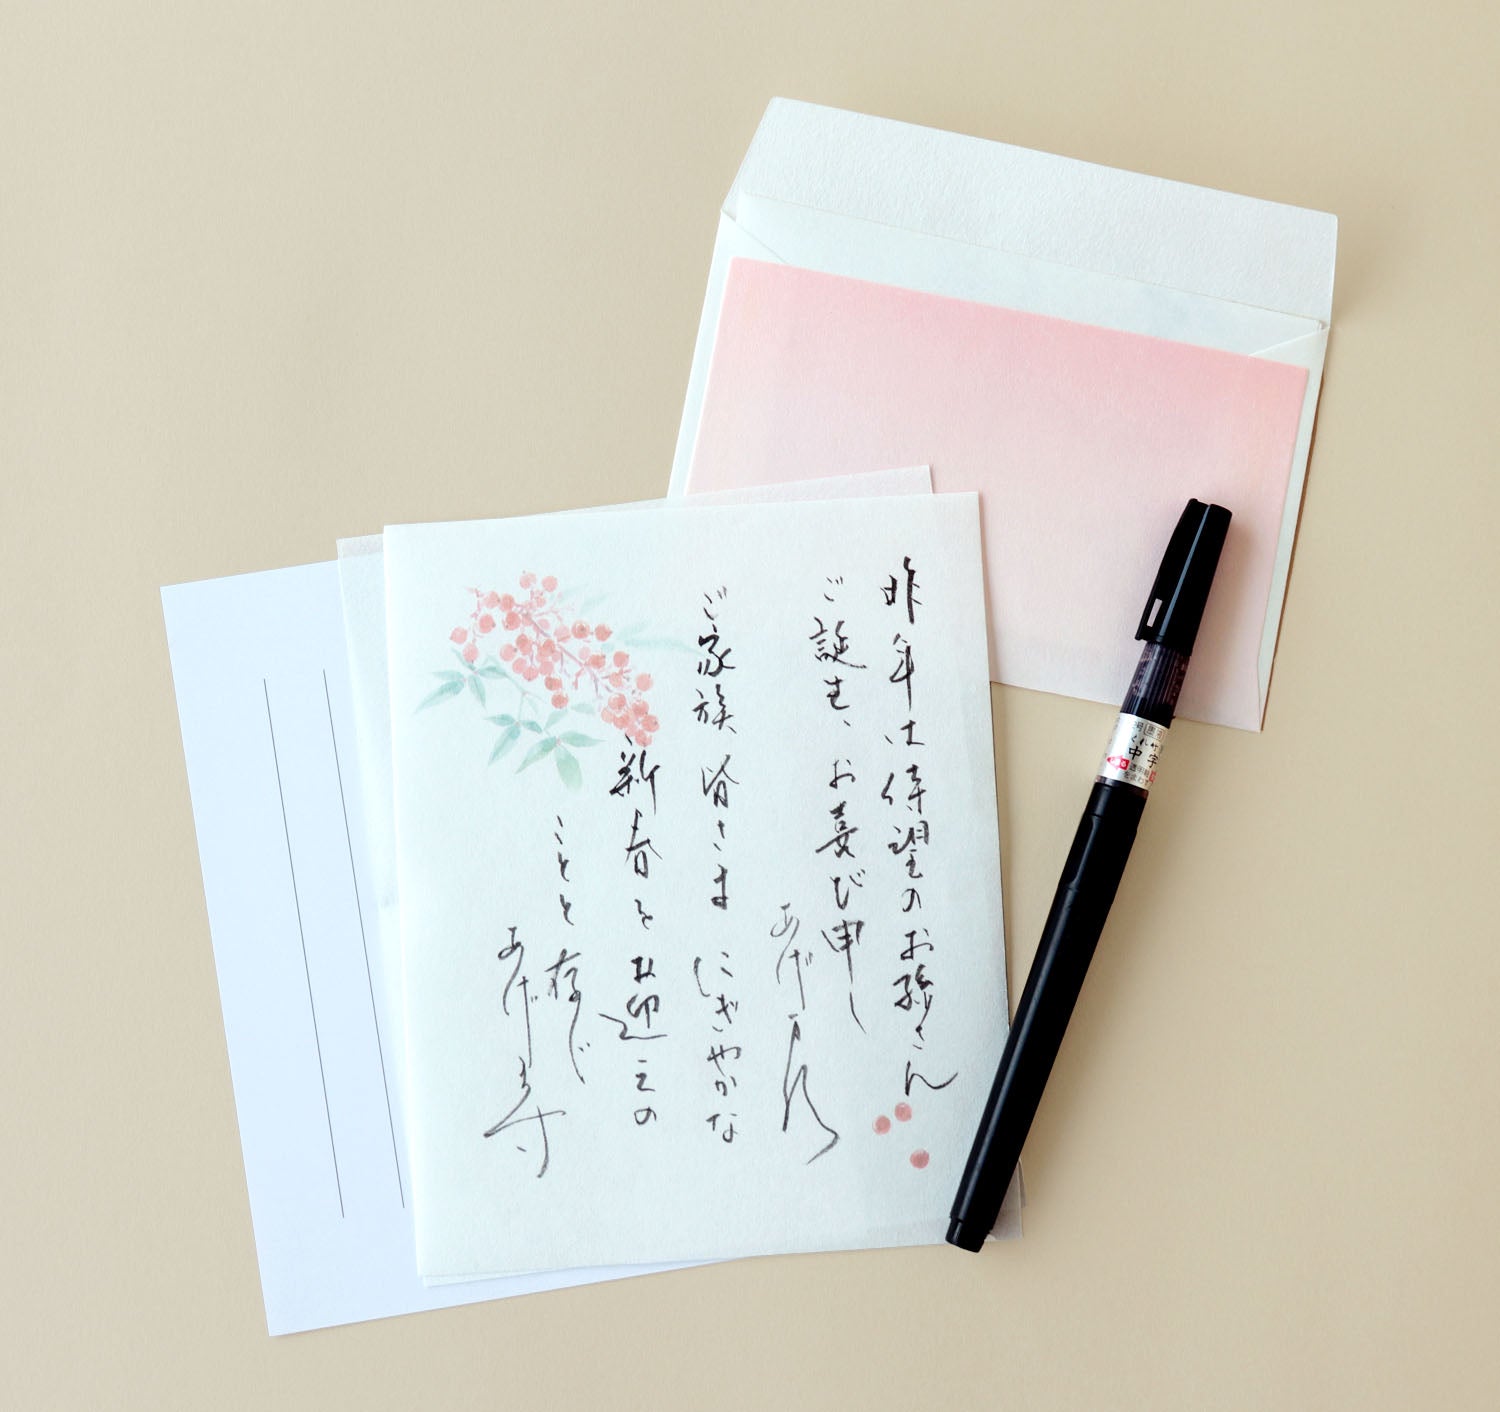 昨年は待望のお孫さん
ご誕生、お喜び申し
あげます
ご家族皆さまにぎやかな
新春をお迎えの
ことと存じ
あげます
くれ竹
中字